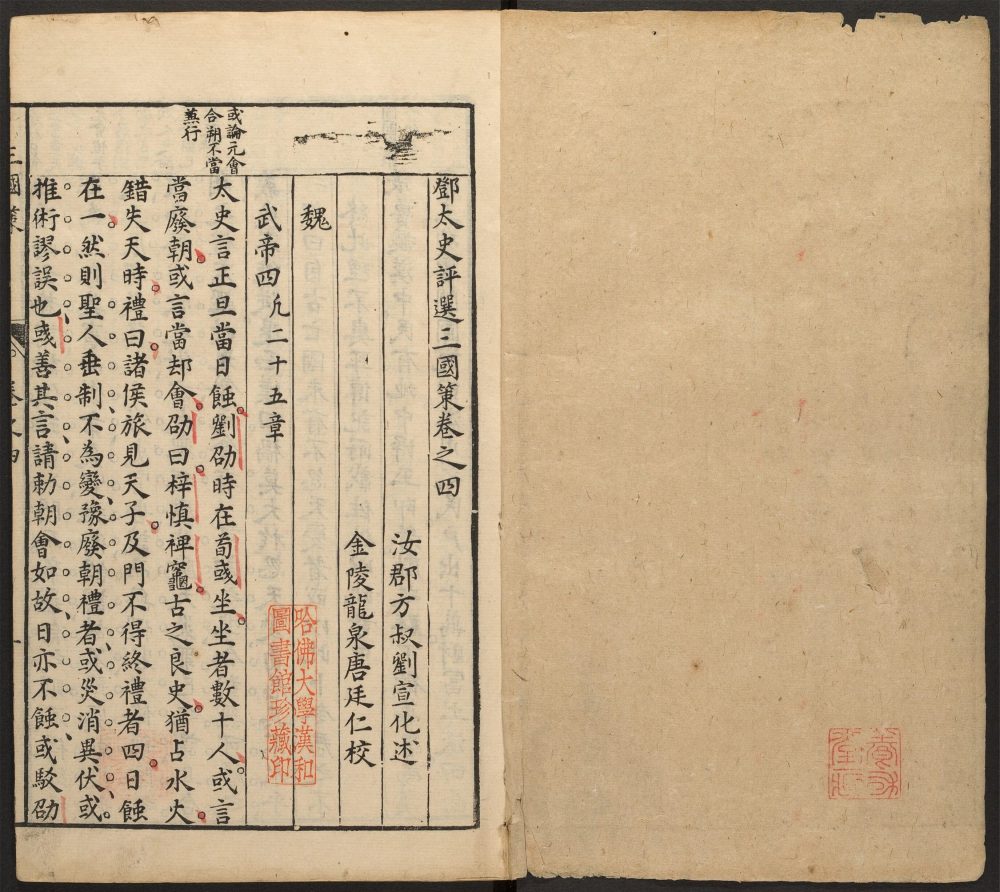 鄧太史評選三國策卷之四
汝郡方叔劉宣化述
金陵龍泉唐廷仁校
魏
武帝四凡二十五章
或論元會
合朔不當
蓋行
太史言正旦當日蝕劉劭時在荀彧坐坐者數十人或言
當廢朝或言當却會劭曰梓慎裨竈古之良史猶占水火
錯失天時禮曰諸侯旅見天子及門不得終禮者四日蝕
在一然則聖人垂制不為變豫廢朝禮者或災消異伏或
推術謬誤也彧善其言請勑朝會如故日亦不蝕或駁劭
三國策
卷之四
一
哈佛大學漢和
圖書館珍藏印